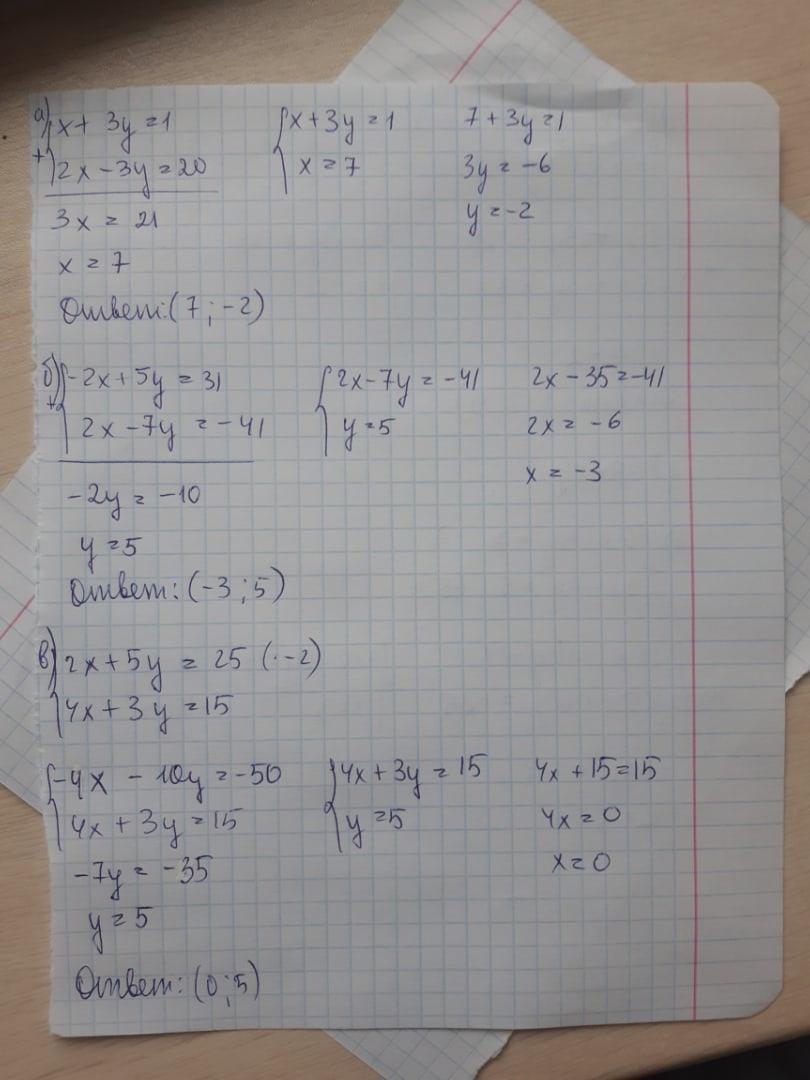 а) x + 3y = 1
+ 2x - 3y = 20
3x = 21
x = 7
x + 3y = 1
x = 7
7 + 3y = 1
3y = -6
y = -2
Ответ: (7; -2)
б) -2x + 5y = 31
+ 2x - 7y = -41
-2y = -10
y = 5
2x - 7y = -41
y = 5
2x - 35 = -41
2x = -6
x = -3
Ответ: (-3; 5)
в) 2x + 5y = 25 (· -2)
4x + 3y = 15
-4x - 10y = -50
4x + 3y = 15
-7y = -35
y = 5
4x + 3y = 15
y = 5
4x + 15 = 15
4x = 0
x = 0
Ответ: (0; 5)